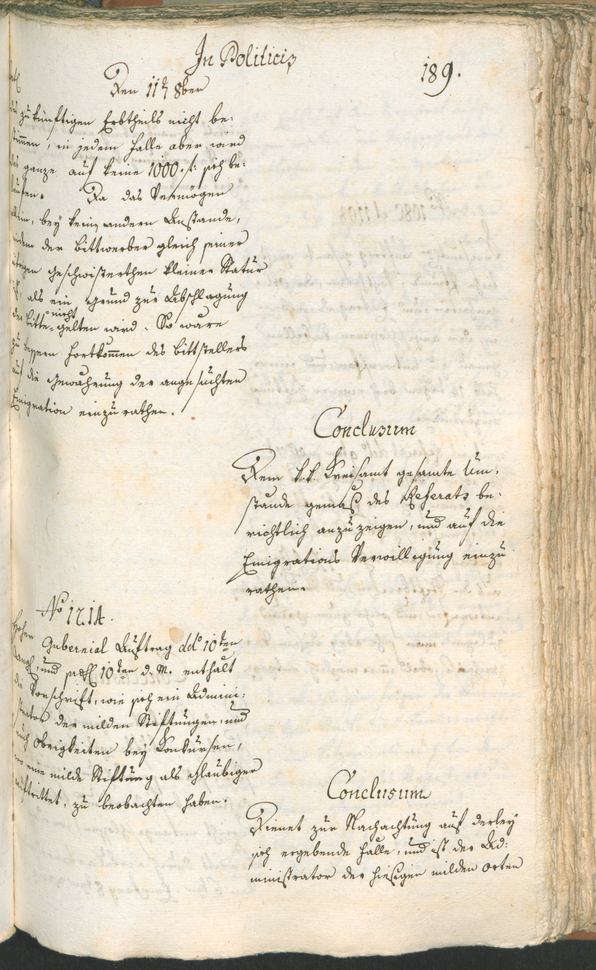 In Politicis
189.
Den 11t 8ber
zukünftigen Erbtheils nicht be:
stimmen, in jedem Falle aber wird
ganze auf keine 1000. f: sich be:
laufen. Da das Vermögen
allein, bey keinen andern Anstande,
indem der Bittwerber gleich seiner
übrigen Geschwisterthen kleiner Statur
ist, als ein Grund zur Abschlagung
der Bitte nicht gelten wird. So wäre
zu bessern Fortkom̄en des Bittstellers
auf die Gewährung der angesuchten
Emigration einzurathen.
Conclusum
Dem k. k. Kreisamt gesamte Um:
stände gemäß des Referats be:
richtlich anzuzeigen, und auf die
Emigrations Verwilligung einzu
rathen.
No 1214.
Gubernial Auftrag ddo 10ten
und 10ten d. M. enthalt
die Vorschrift, wie sich ein Admini:
strator der milden Stiftungen, und
auch Obrigkeiten bey Konkursen,
wo eine milde Stiftung als Glaubiger
auftrittet, zu beobachten haben.
Conclusum
Dienet zur Nachachtung auf derley
sich ergebende Fälle, und ist der Ad:
ministrator der hiesigen milden Orten